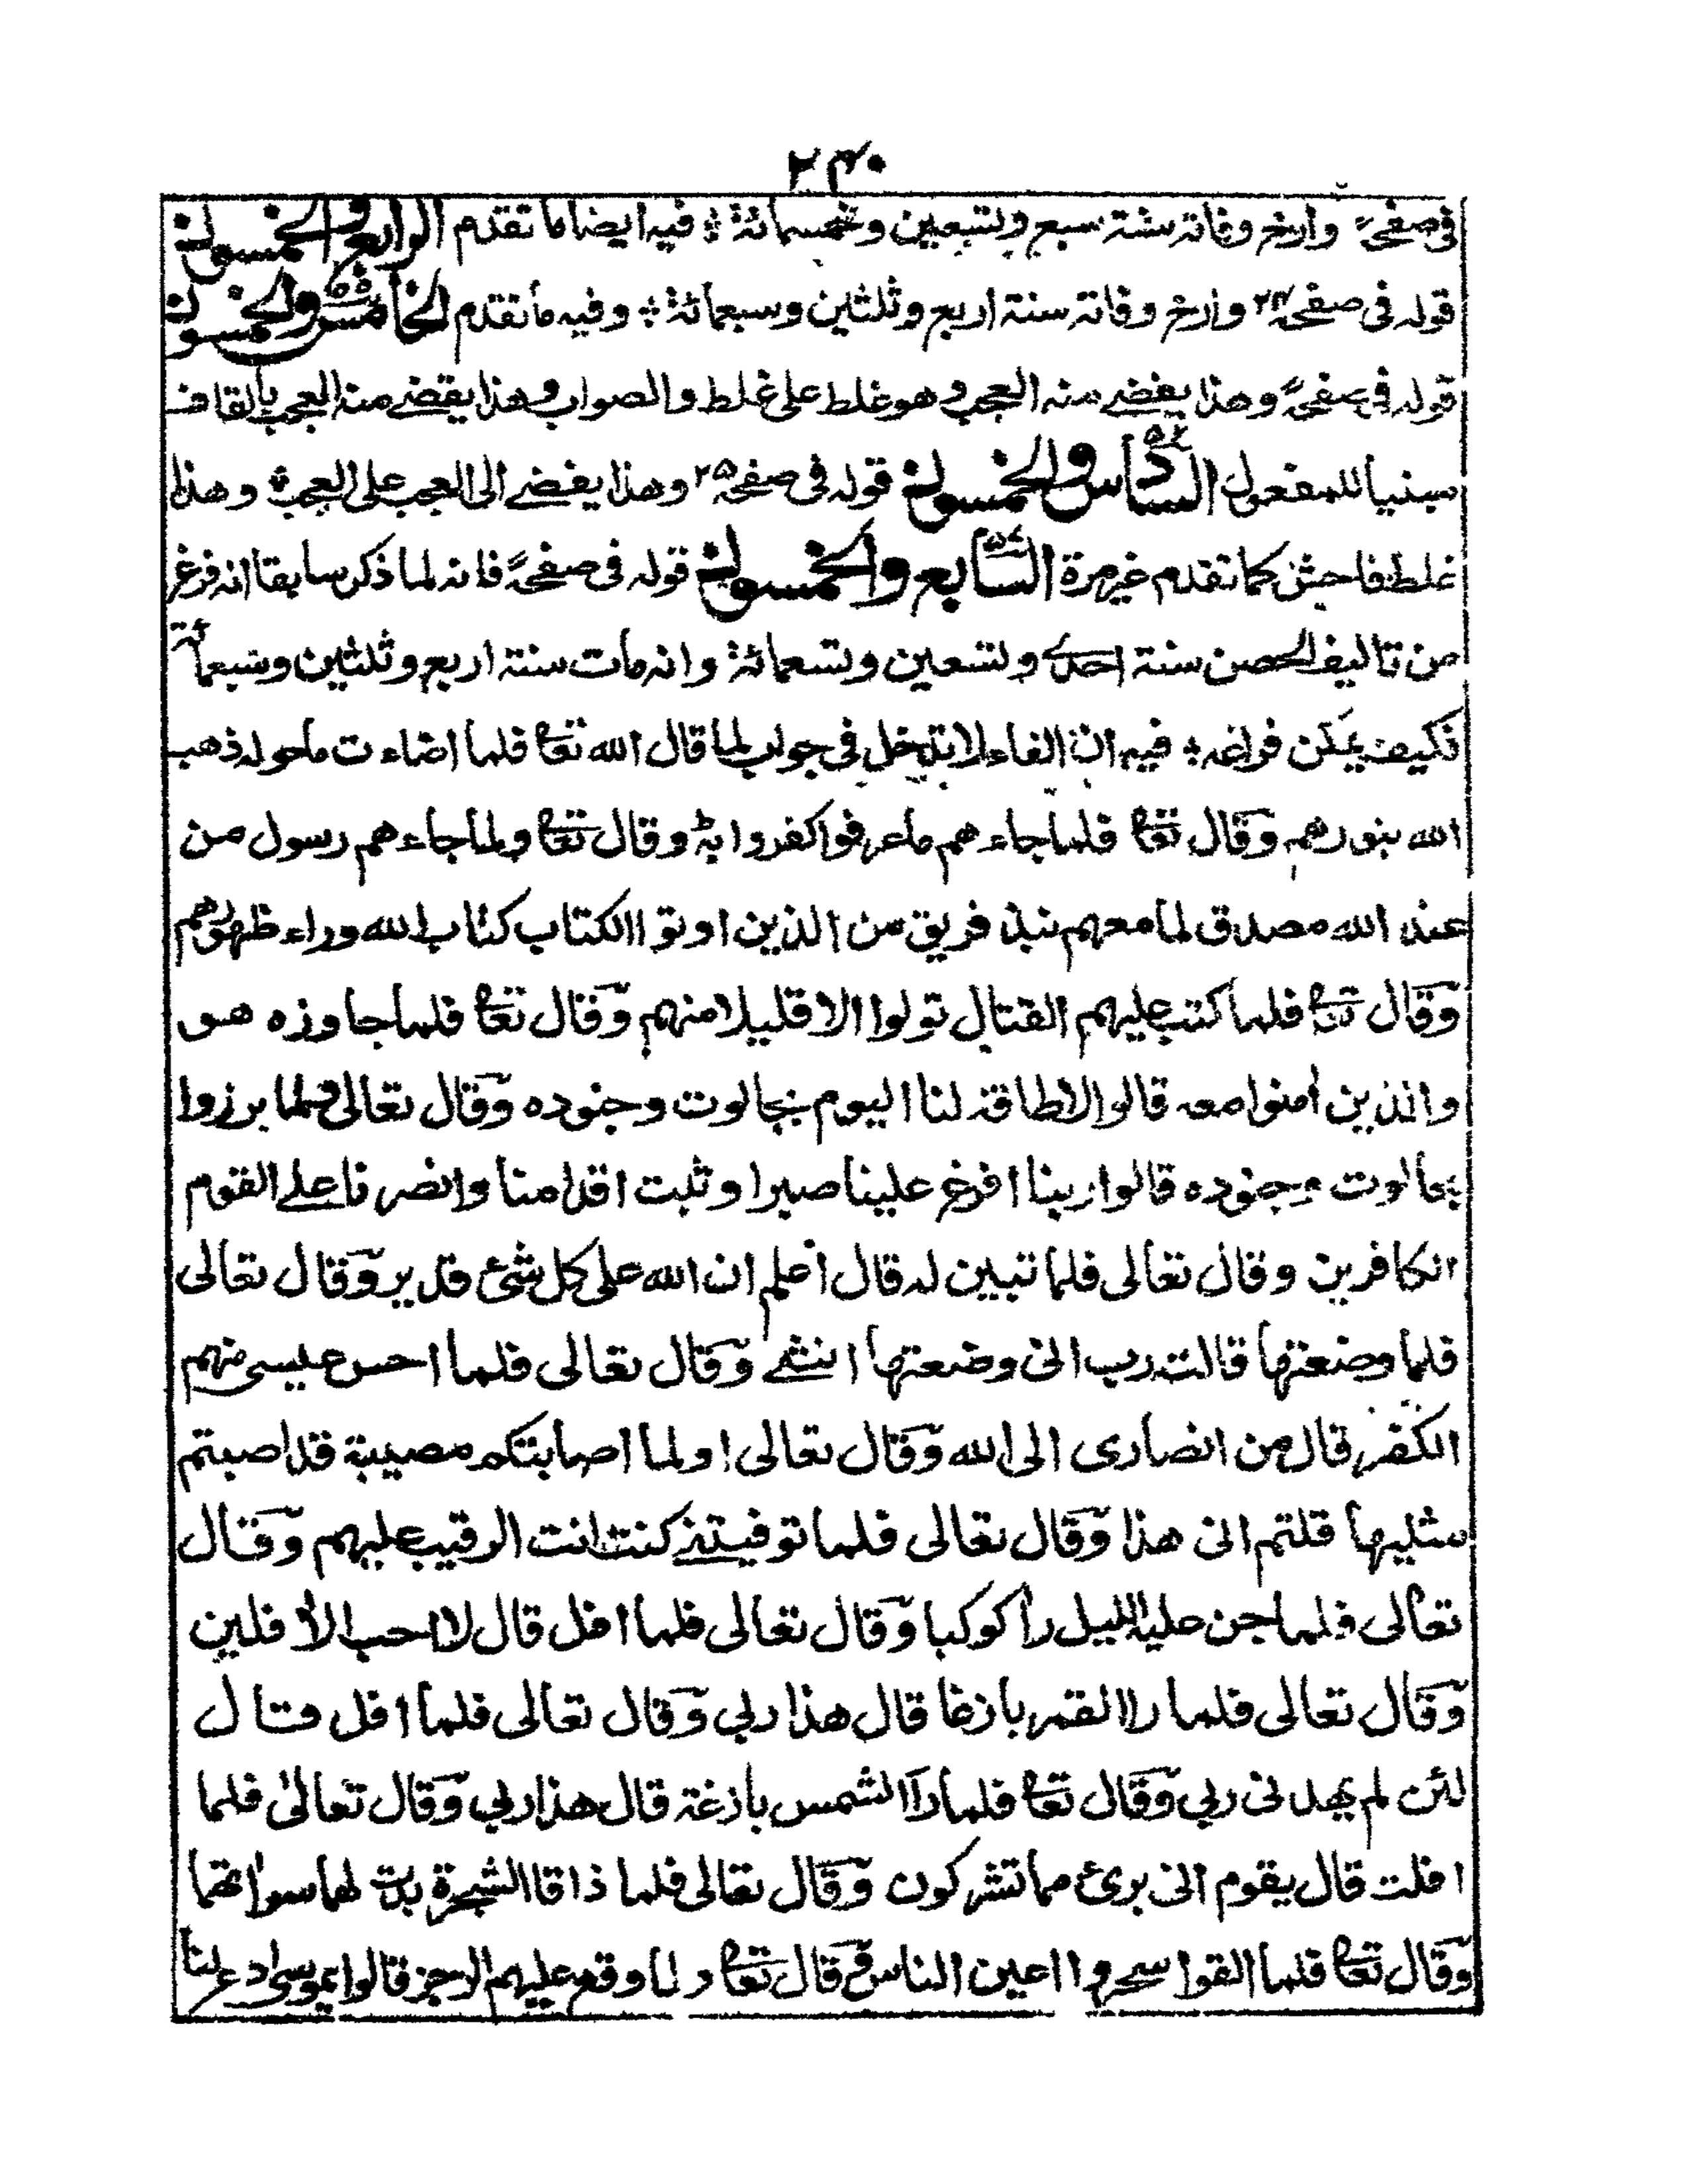 ۲۴۰
فی صفحۃ وارخ وفاتہ سنۃ سبع وتسعین وخمسمائۃ ÷ فیہ ایضا ما تقدم الرابع والخمسون
قولہ فی صفحہ ۲۴ وارخ وفاتہ سنۃ اربع وثلثین وسبعمائۃ ÷ وفیہ ما تقدم الخامس والخمسون
قولہ فی صفحۃ وھذا یفضے منہ العجب وھو غلط علی غلط والصواب وھذا یقضے منہ العجب بالقاف
مبنیا للمفعول السادس والخمسون قولہ فی صفحہ ۲۵ وھذا یفضے الی العجب علی العجب ÷ وھذا
غلط فاحش کما تقدم غیر مرۃ السابع والخمسون قولہ فی صفحۃ فانہ لما ذکر سابقا انہ فرغ
من تالیف الحصن سنۃ احدے وتسعین وتسعمائۃ وانہ مات سنۃ اربع وثلثین وسبعمائۃ
فکیف یمکن فراغہ ÷ فیہ ان الفاء لا تدخل فی جواب لما قال اللہ تعا فلما اضاءت ماحولہ ذھب
اللہ بنورھم وقال تعا فلما جاءھم ما عرفوا کفروا بہ وقال تعا ولما جاءھم رسول من
عند اللہ مصدق لما معھم نبذ فریق من الذین اوتوا الکتاب کتاب اللہ وراء ظھورھم
وقال تعا فلما کتب علیھم القتال تولوا الا قلیلا منھم وقال تعا فلما جاوزہ ھو
والذین اٰمنوا معہ قالوا لا طاقۃ لنا الیوم بجالوت وجنودہ وقال تعالی ولما برزوا
بجالوت وجنودہ قالوا ربنا افرغ علینا صبرا وثبت اقدامنا وانصرنا علے القوم
الکافرین وقال تعالی فلما تبین لہ قال اعلم ان اللہ علی کل شئ قدیر وقال تعالی
فلما وضعتھا قالت رب انی وضعتھا انثے وقال تعالی فلما احس عیسی منھم
الکفر قال من انصاری الی اللہ وقال تعالی اولما اصابتکم مصیبۃ قد اصبتم
مثلیھا قلتم انی ھذا وقال تعالی فلما توفیتنے کنت انت الرقیب علیھم وقال
تعالی فلما جن علیہ اللیل راٰ کوکبا وقال تعالی فلما افل قال لا احب الاٰفلین
وقال تعالی فلما را القمر بازغا قال ھذا ربی وقال تعالی فلما افل قال
لئن لم یھدنی ربی وقال تعا فلما راٰ الشمس بازغۃ قال ھذا ربی وقال تعالیٰ فلما
افلت قال یقوم انی برئ مما تشرکون وقال تعالی فلما ذاقا الشجرۃ بدت لھما سواٰتھما
وقال تعا فلما القوا سحروا اعین الناس وقال تعا ولما وقع علیھم الرجز قالوا یموسی ادع لنا